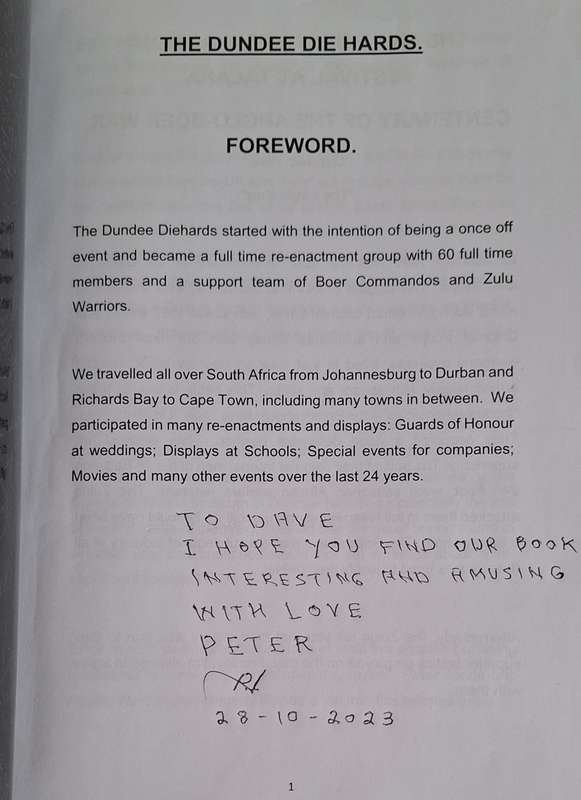 THE DUNDEE DIE HARDS.
FOREWORD.
The Dundee Diehards started with the intention of being a once off
event and became a full time re-enactment group with 60 full time
members and a support team of Boer Commandos and Zulu
Warriors.
We travelled all over South Africa from Johannesburg to Durban and
Richards Bay to Cape Town, including many towns in between. We
participated in many re-enactments and displays: Guards of Honour
at weddings; Displays at Schools; Special events for companies;
Movies and many other events over the last 24 years.
TO DAVE
I HOPE YOU FIND OUR BOOK
INTERESTING AND AMUSING
WITH LOVE
PETER
28-10-2023
1